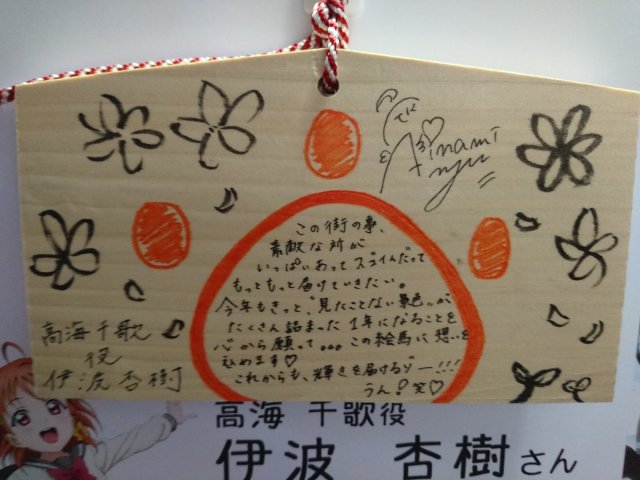 Ainami
nyu
この街の事、
素敵な所が
いっぱいあってスゴイんだって
もっともっと届けていきたい。
今年もきっと"見たことない景色"が
たくさん詰まった1年になることを
心から願って...この絵馬に想いを
込めます♡
これからも、輝きを届けるゾー!!!
うん?笑♡
高海千歌
役
伊波杏樹
高海 千歌役
伊波 杏樹さん